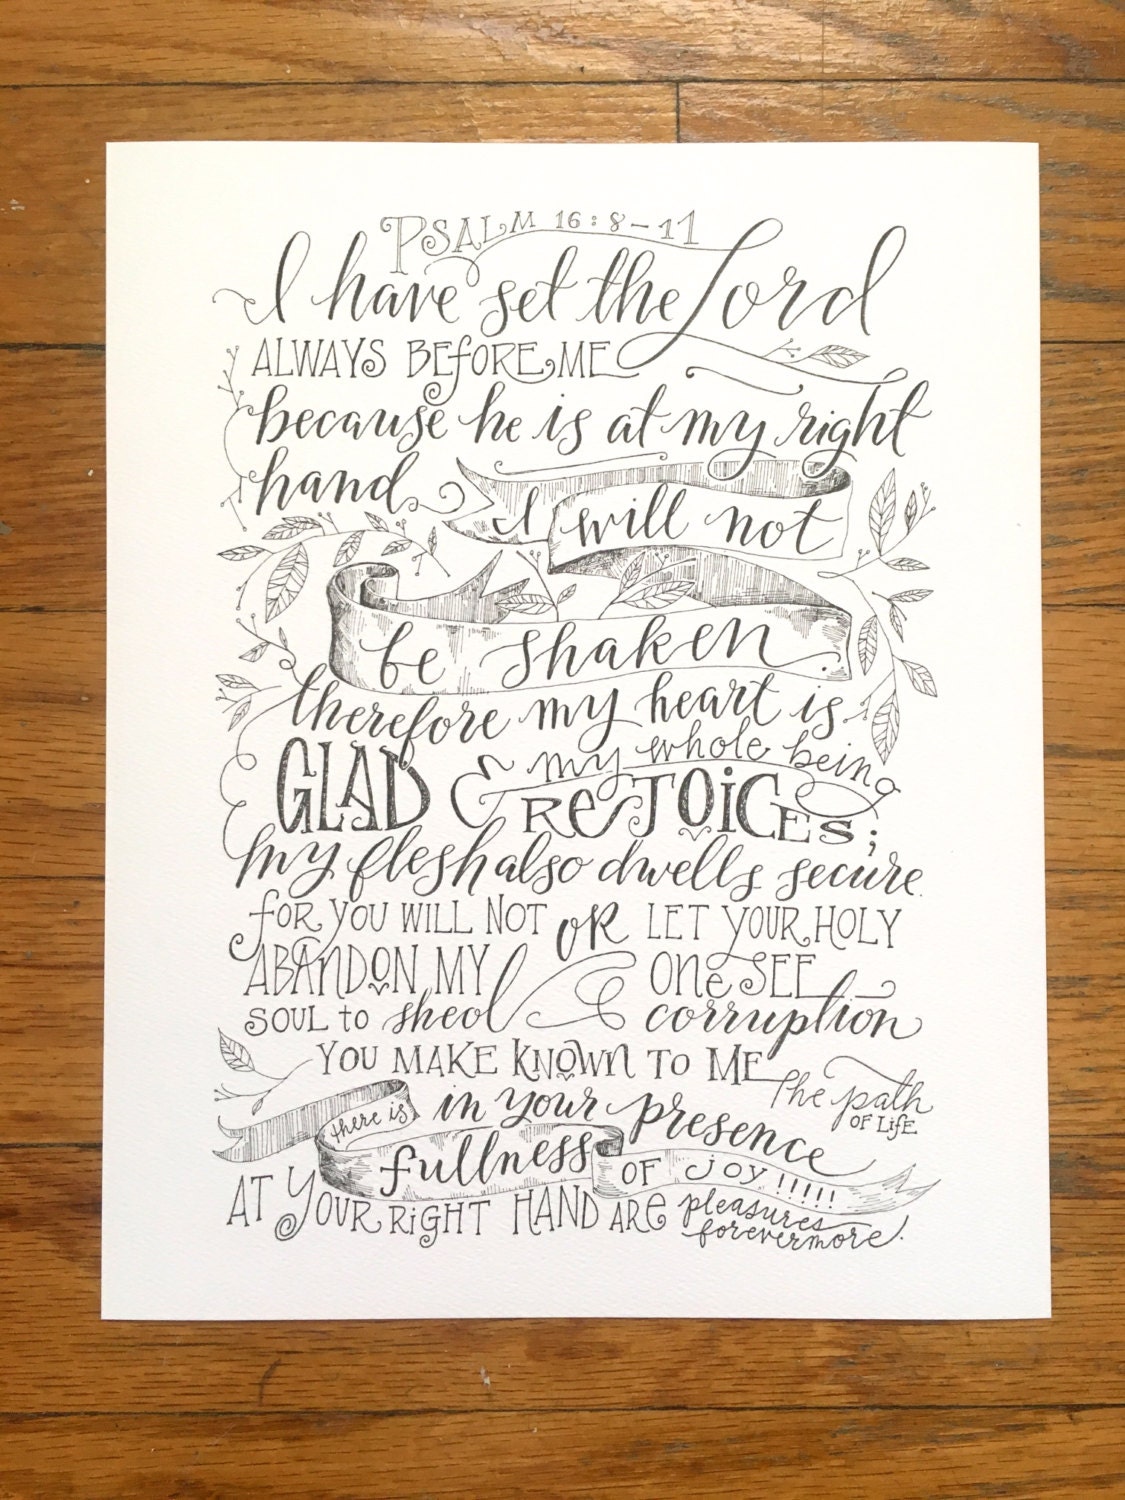 PSALM 16:8-11
I have set the Lord
ALWAYS BEFORE ME
because he is at my right
hand
I will not
be shaken.
therefore my heart is
GLAD & my whole being
REJOICES;
my flesh also dwells secure.
FOR YOU WILL NOT OR LET YOUR HOLY
ABANDON MY ONE SEE
SOUL to sheol corruption
YOU MAKE KNOWN TO ME
the path
OF LIFE
there is in your presence
fullness OF joy!!!!!
AT YOUR RIGHT HAND ARE pleasures
forevermore.